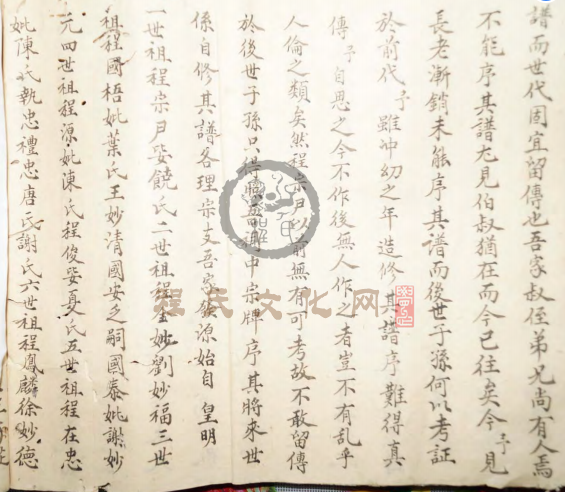 譜而世代固宜留傳也吾家叔侄弟兄尚有人焉
不能序其譜尤見伯叔猶在而今已往矣今予見
長老漸銷未能序其譜而後世子孫何以考証
於前代予雖冲幼之年造修其譜序難得真
傳予自思之今不作後無人作之者豈不有乱乎
人倫之類矣然程宗尹以前無有可考故不敢留傳
於後世子孫只得 中宗牌序其將來世
係自修其譜各理宗支吾家發源始自皇明
一世祖程宗尹娶饒氏二世祖程 妙劉妙福三世
祖程國梧妣葉氏王妙清國安乏嗣國泰妣謝妙
元四世祖程源妣陳氏程俊娶夏氏五世祖程在忠
妣陳氏執忠禮忠唐氏謝氏六世祖程鳳麟徐妙德
程氏文化网